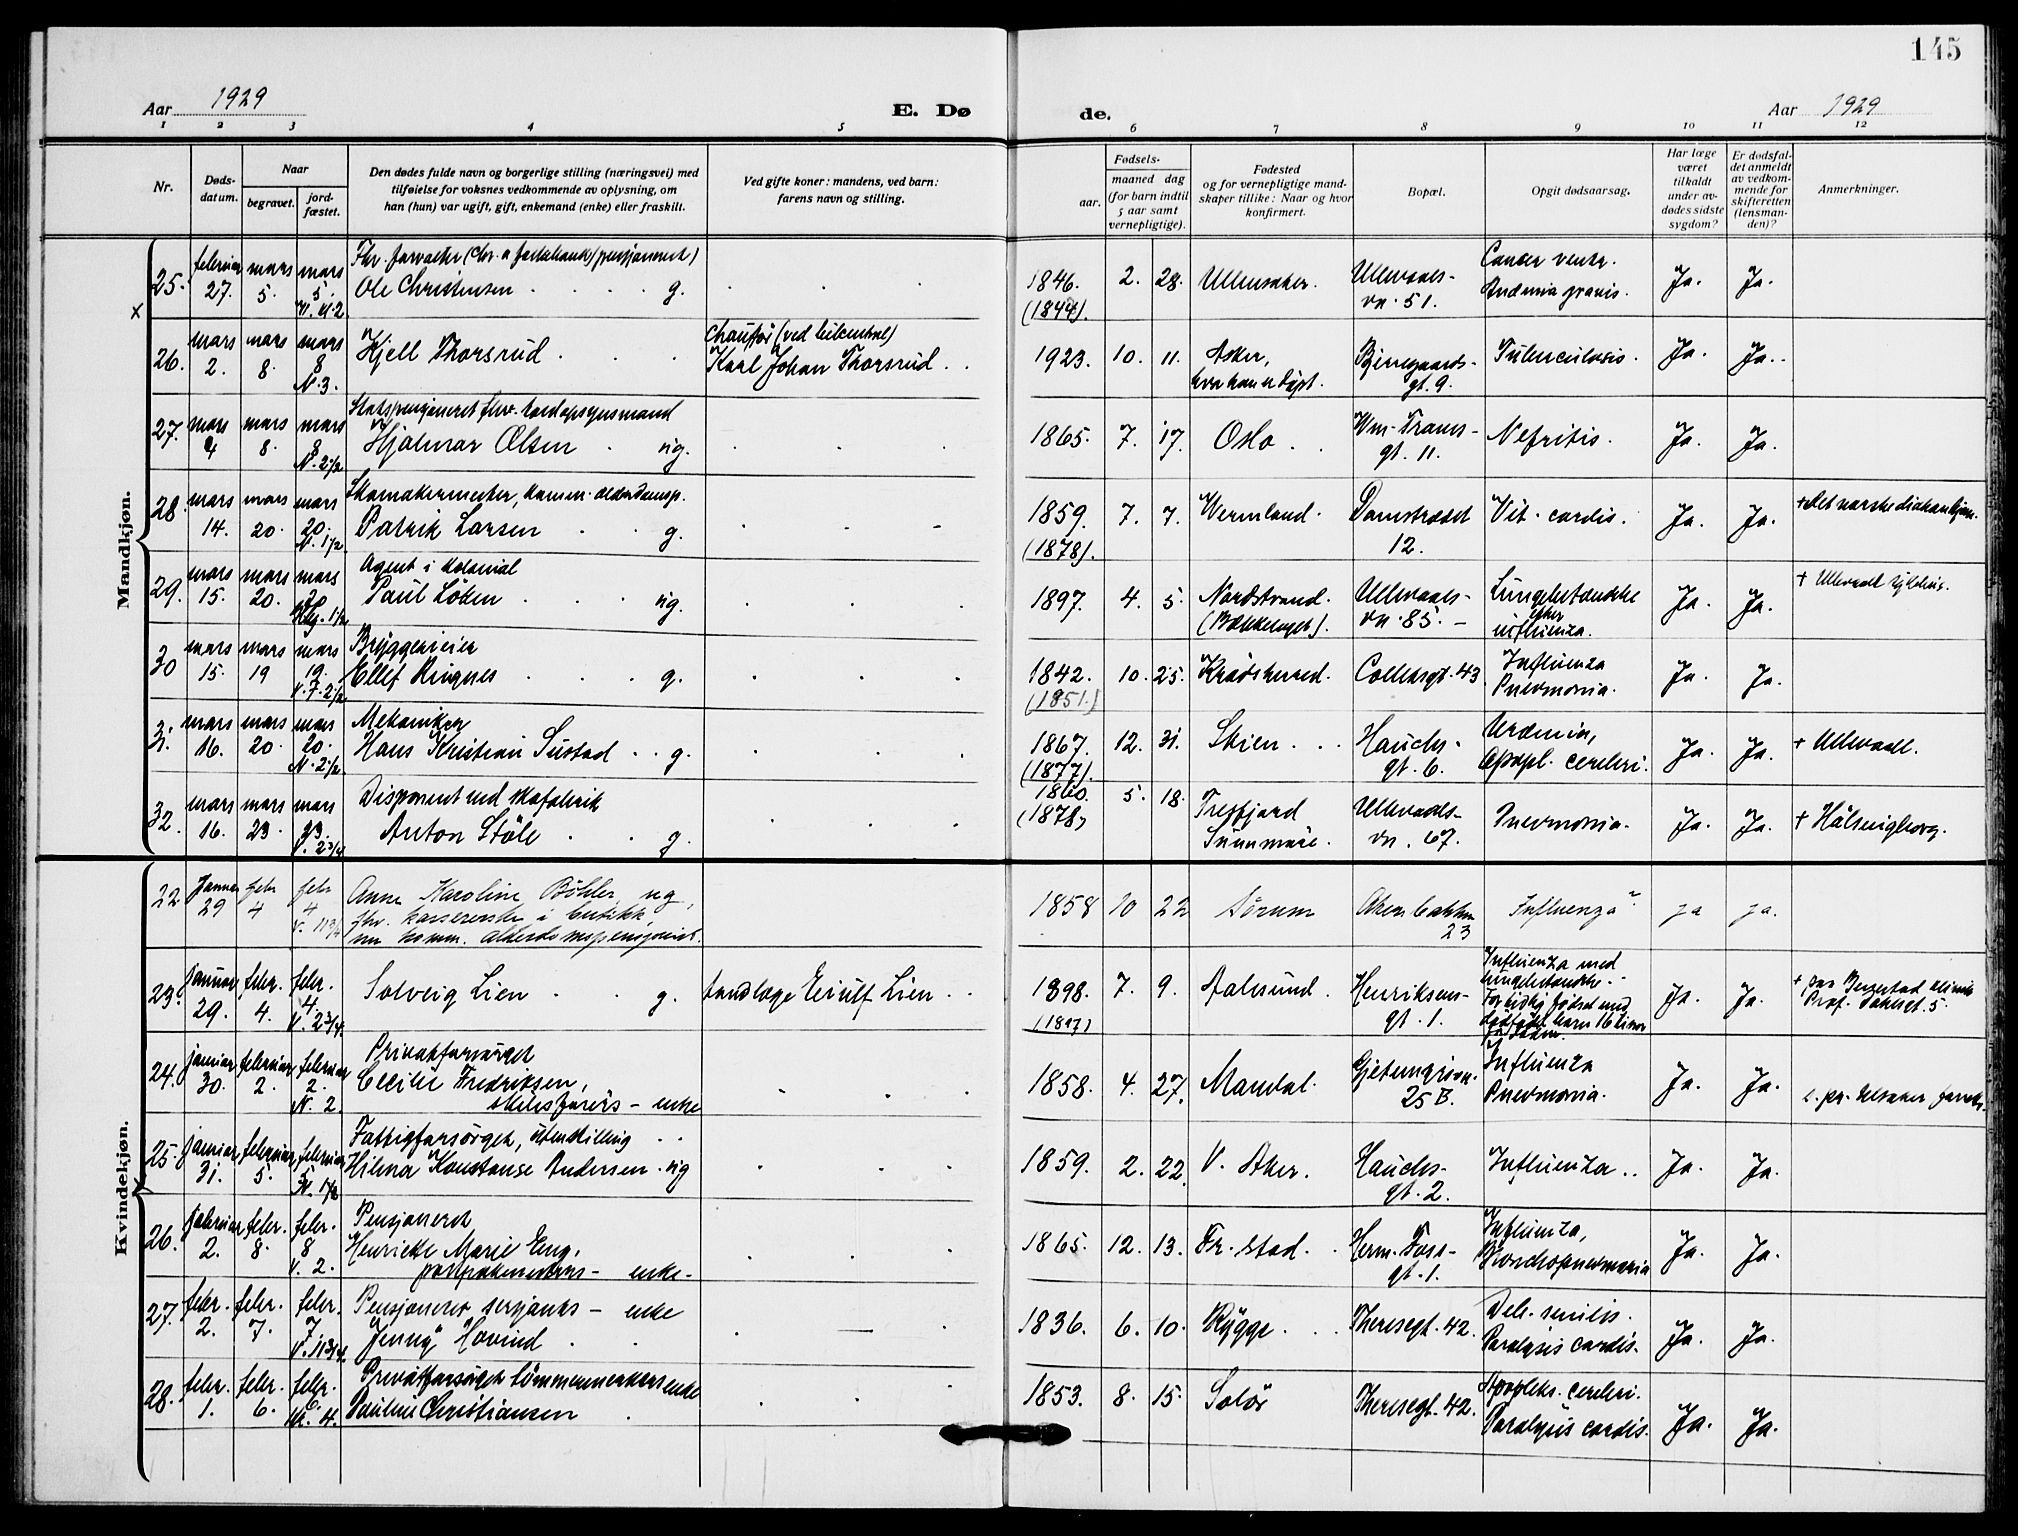 145
Aar 1929
E. Dø
de.
Aar 1929
1 2 3 4 5 6 7 8 9 10 11 12
Nr.
Døds-
datum.
Naar
begravet.
jord-
fæstet.
Den dødes fulde navn og borgerlige stilling (næringsvei) med
tilføielse for voksnes vedkommende av oplysning, om
han (hun) var ugift, gift, enkemand (enke) eller fraskilt.
Ved gifte koner: mandens, ved barn:
farens navn og stilling.
Fødsels-
aar.
maaned dag
(for barn indtil
5 aar samt
vernepligtige).
Fødested
og for vernepligtige mand-
skaper tillike: Naar og hvor
konfirmert.
Bopæl.
Opgit dødsaarsag.
Har læge
været
tilkaldt
under av-
dødes sidste
sygdom?
Er dødsfal-
det anmeldt
av vedkom-
mende for
skifteretten
(lensman-
den)?
Anmerkninger.
Mandkjøn.
25. februar 27. mars 5. mars 5.
Ole Christensen g.
1846. (1844). 2. 28. Ullensaker. Ullevaals-
vn. 51. Cancer ventr.
Anæmia gravis. Ja. Ja.
x
26. mars 2. mars 8. mars 8 N. 3.
Kjell Thorsrud
Chauffør (ved bilcentral)
Karl Johan Thorsrud
1923. 10. 11. Asker,
hvor han er døpt. Bjerregaards-
gt. 9. Tuberculosis. Ja. Ja.
27. mars 4 mars 8. mars 8 N. 2 1/2
Hjalmar Olsen ug.
1865. 7. 17. Oslo. Wm. Thranes-
gt. 11. Nefritis. Ja. Ja.
28. mars 14. mars 20. mars 20. N. 1 1/2
Skomakermester, komm. alderdomsp.
Patrik Larsen g.
1859. (1878). 7. 7. Wermland. Damstrædet
12. Vit. cordis. Ja. Ja. + Det norske diakonhjem.
29. mars 15. mars 20. mars 20 1 1/2
Agent i kolonial
Paul Löken ug.
1897. 4. 5. Nordstrand.
(Bækkelaget). Ullevaals-
vn. 85. Lungebetændelse
efter
influenza. Ja. Ja. + Ullevaal sykehus.
30 mars 15. mars 19 mars 19. V. F. 2 1/2
Bryggerieier
Ellef Ringnes g.
1842. (1851.) 10. 25. Krödsherred. Colletsgt. 43 Influenza
Pnevmonia. Ja. Ja.
31. mars 16. mars 20. mars 20. N. 2 1/2
Mekaniker
Hans Kristian Sustad g.
1867. (1877). 12. 31. Skien. Hauchs-
gt. 6. Uræmia,
Apopl. cerebri. Ja. Ja. + Ullevaal.
32. mars 16. mars 23. mars 23. V. 2 3/4
Disponent ved skofabrik
Anton Stöle g.
1860. (1878) 5. 18. Tresfjord
Sunnmöre. Ullevaals-
vn. 67. Pnevmonia. Ja. Ja. + Hälsingborg.
Kvindekjøn.
22 Januar 29 febr 4 febr 4 V. 11 3/4
Anne Karoline Böhler, ug,
fhv. kassererske i butikk
nu komm. alderdomspensjonist.
1858 10 22 Sörum Akersbakken
23 Influenza ja ja.
23. januar 29. febr. 4. febr. 4 V. 2 3/4.
Solveig Lien g. tandlæge Eiulf Lien
1898. 7. 9. Aalesund. Henriksens-
gt. 1. Influenza med
lungebetændelse.
For tidlig födsel med
dödfödt barn 16 timer
för döden. Ja. Ja.
24. januar 30. februar 2. februar 2. N. 2.
Privatforsörget
Cecilie Fredriksen,
skibsförers- enke
1858. 4. 27. Mandal. Gjetemyrsvn.
25 B. Influenza
Pnevmonia. Ja. Ja.
25. januar 31. februar 5. februar 5
Fattigforsörget, uten stilling
Hilma Konstanse Andersen. ug
1859. 2. 22. V. Aker. Hauchs-
gt. 2. Influenza.. Ja. Ja.
26. februar 2. febr. 8. febr. 8 V. 2.
Pensjonert
Henriette Marie Eng.
enke-
1865. 12. 13. Fr. stad. Herm. Foss-
gt. 1. Influenza,
Bronchopnevmonia Ja. Ja.
27. febr. 2. febr. 7. febr. 7 V. 11 3/4
Pensjonert, serjants- enke
Jenny Hovind
1836. 6. 10. Rygge. Theresegt. 42. Deb. senilis.
Paralysis cordis. Ja. Ja.
28. febr. 1. febr. 6. febr. 6. kl. 4.
Privatforsörget tömmermands enke
Pauline Christiansen
1853. 8. 15. Solör Theresegt. 42. Apopleks. cerebri.
Paralysis cordis. Ja. Ja.